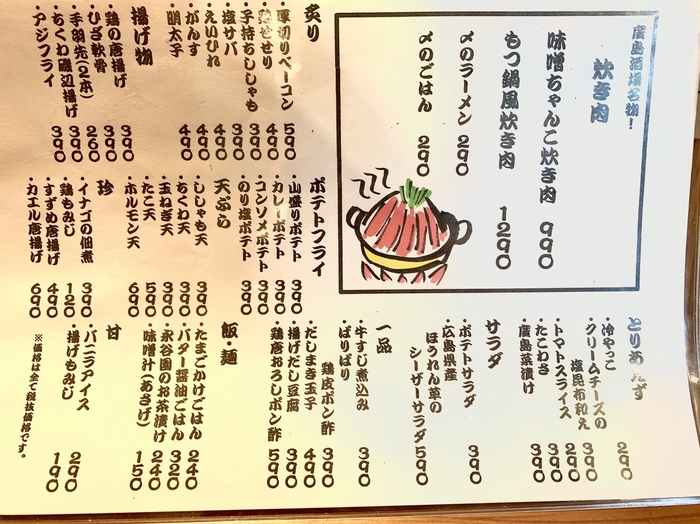 廣島酒場名物!
炊き肉
味噌ちゃんこ炊き肉 990
もつ鍋風炊き肉 1290
〆のラーメン 290
〆のごはん 290
炙り
・厚切りベーコン 590
・鶏せせり 490
・子持ちししゃも 390
・塩サバ 390
・えいひれ 490
・がんす 490
・明太子 490
揚げ物
・鶏の唐揚げ 390
・ひざ軟骨 390
・手羽先(2本) 260
・ちくわ磯辺揚げ 390
・アジフライ 390
ポテトフライ
・山盛りポテト 390
・カレーポテト 390
・コンソメポテト 390
・のり塩ポテト 390
天ぷら
・ししゃも天 390
・ちくわ天 390
・玉ねぎ天 390
・たこ天 590
・ホルモン天 690
珍
・イナゴの佃煮 390
・鶏もみじ 120
・すずめ唐揚げ 490
・カエル唐揚げ 690
とりあえず
・冷やっこ 290
・クリームチーズの
塩昆布和え 390
・トマトスライス 290
・たこわさ 390
・廣島菜漬け 390
サラダ
・ポテトサラダ 390
・広島県産
ほうれん草の
シーザーサラダ 590
一品
・牛すじ煮込み 390
・ぱりぱり
鶏皮ポン酢 390
・だしまき玉子 490
・揚げだし豆腐 390
・鶏唐おろしポン酢 590
飯・麺
・たまごかけごはん 240
・バター醤油ごはん 320
・永谷園のお茶漬け 240
・味噌汁(あさげ) 150
甘
・バニラアイス 290
・揚げもみじ 190
※価格は全て税抜価格です。